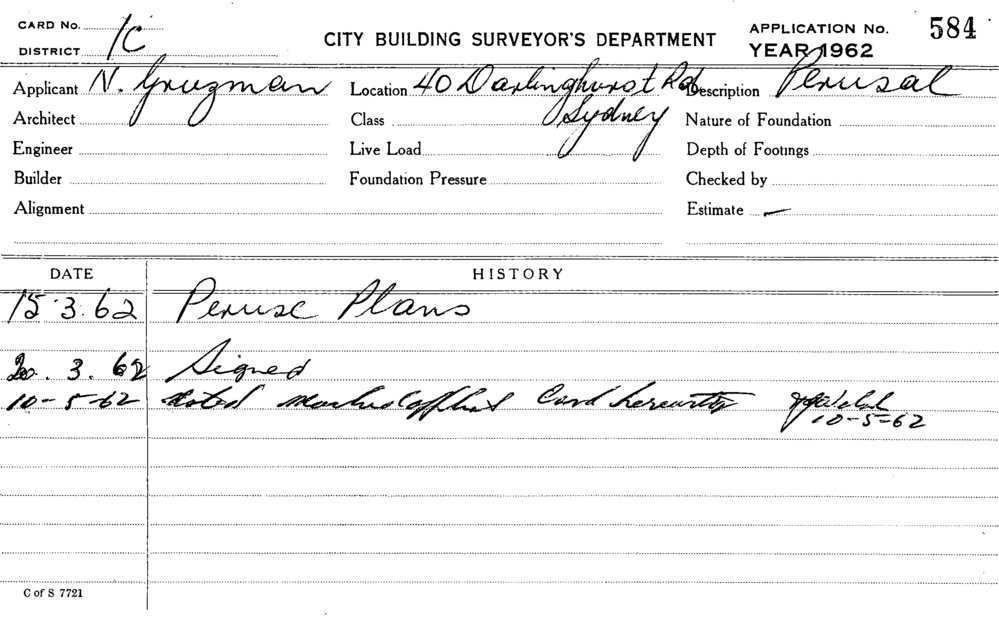 CARD No. 1C
DISTRICT
CITY BUILDING SURVEYOR'S DEPARTMENT
APPLICATION No. 584
YEAR 1962
Applicant N. Gruzman Location 40 Darlinghurst Rd Description Perusal
Architect Class Sydney Nature of Foundation
Engineer Live Load Depth of Footings
Builder Foundation Pressure Checked by
Alignment Estimate —
DATE HISTORY
15.3.62 Peruse Plans
20.3.62 Signed
10-5-62 Noted Card hereunto
10-5-62
C of S 7721